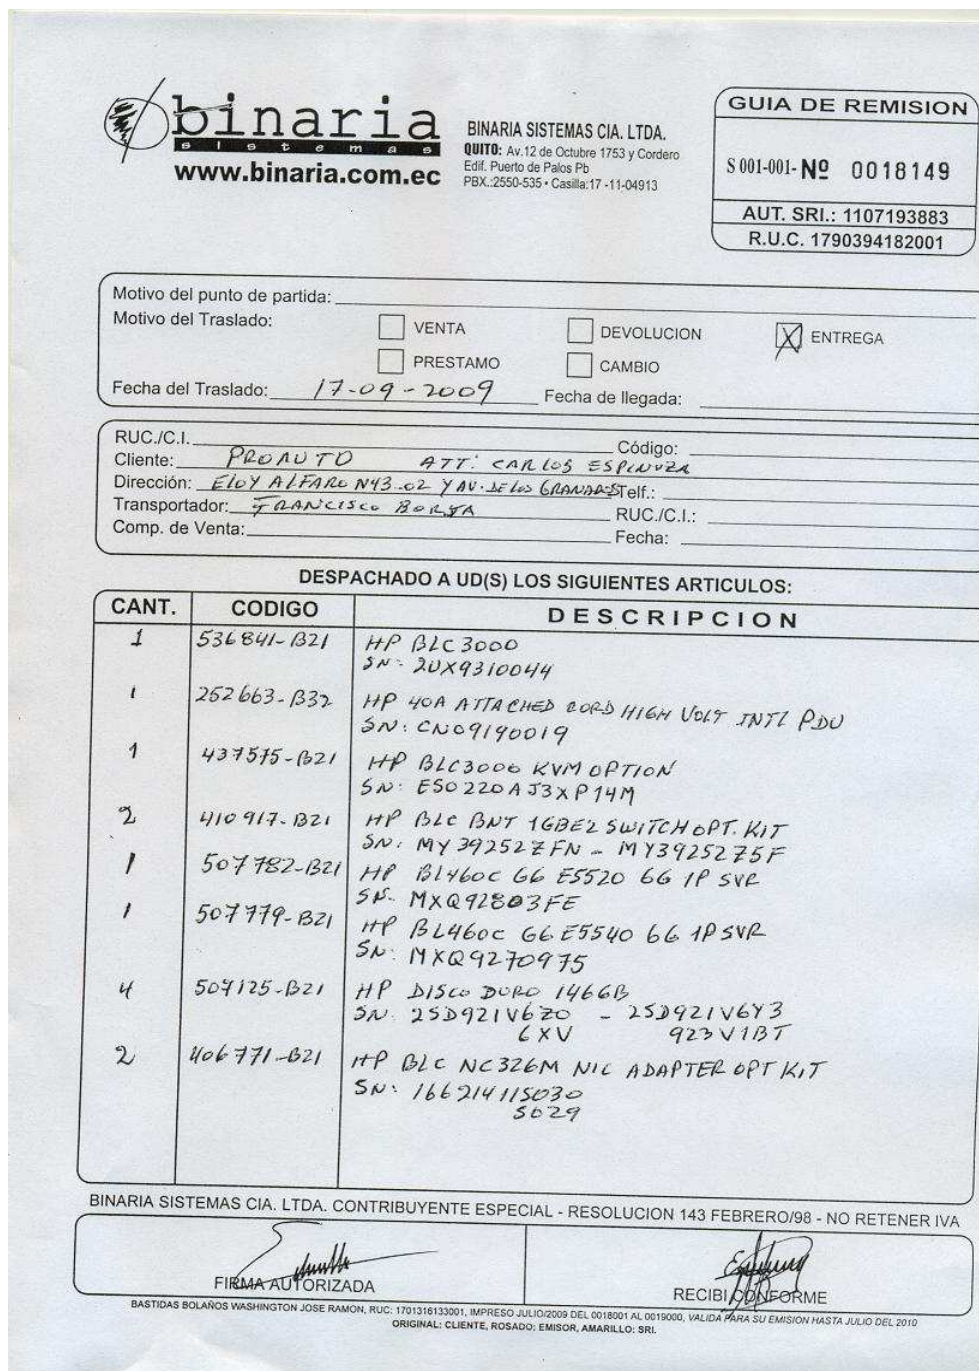 binaria
sistemas
www.binaria.com.ec
BINARIA SISTEMAS CIA. LTDA.
QUITO: Av.12 de Octubre 1753 y Cordero
Edif. Puerto de Palos Pb
PBX.:2550-535 • Casilla:17 -11-04913
GUIA DE REMISION
S 001-001- Nº 0018149
AUT. SRI.: 1107193883
R.U.C. 1790394182001
Motivo del punto de partida:
Motivo del Traslado:
VENTA DEVOLUCION X ENTREGA
PRESTAMO CAMBIO
Fecha del Traslado: 17-09-2009 Fecha de llegada:
RUC./C.I. Código:
Cliente: PROAUTO ATT: CARLOS ESPINOZA
Dirección: ELOY ALFARO N43-02 Y AV. DE LOS GRANADOS Telf.:
Transportador: FRANCISCO BORJA RUC./C.I.:
Comp. de Venta: Fecha:
DESPACHADO A UD(S) LOS SIGUIENTES ARTICULOS:
CANT. CODIGO DESCRIPCION
1 536841-B21 HP BLC3000
SN: 2UX9310044
1 252663-B32 HP 40A ATTACHED CORD HIGH VOLT INTL PDU
SN: CN09190019
1 437575-B21 HP BLC3000 KVM OPTION
SN: ES0220AJ3XP14M
2 410917-B21 HP BLC BNT 1GBE2 SWITCH OPT. KIT
SN: MY392527FN - MY3925275F
1 507782-B21 HP BL460C G6 E5520 6G 1P SVR
SN- MXQ92803FE
1 507779-B21 HP BL460C G6 E5540 6G 1P SVR
SN: MXQ9270975
4 507125-B21 HP DISCO DURO 146GB
SN. 2SD921V6Z0 - 2SD921V6Y3
6XV 923V1BT
2 406771-B21 HP BLC NC326M NIC ADAPTER OPT KIT
SN: 166214115030
5029
BINARIA SISTEMAS CIA. LTDA. CONTRIBUYENTE ESPECIAL - RESOLUCION 143 FEBRERO/98 - NO RETENER IVA
FIRMA AUTORIZADA
RECIBI CONFORME
BASTIDAS BOLAÑOS WASHINGTON JOSE RAMON, RUC: 1701316133001, IMPRESO JULIO/2009 DEL 0018001 AL 0019000, VALIDA PARA SU EMISION HASTA JULIO DEL 2010
ORIGINAL: CLIENTE, ROSADO: EMISOR, AMARILLO: SRI.